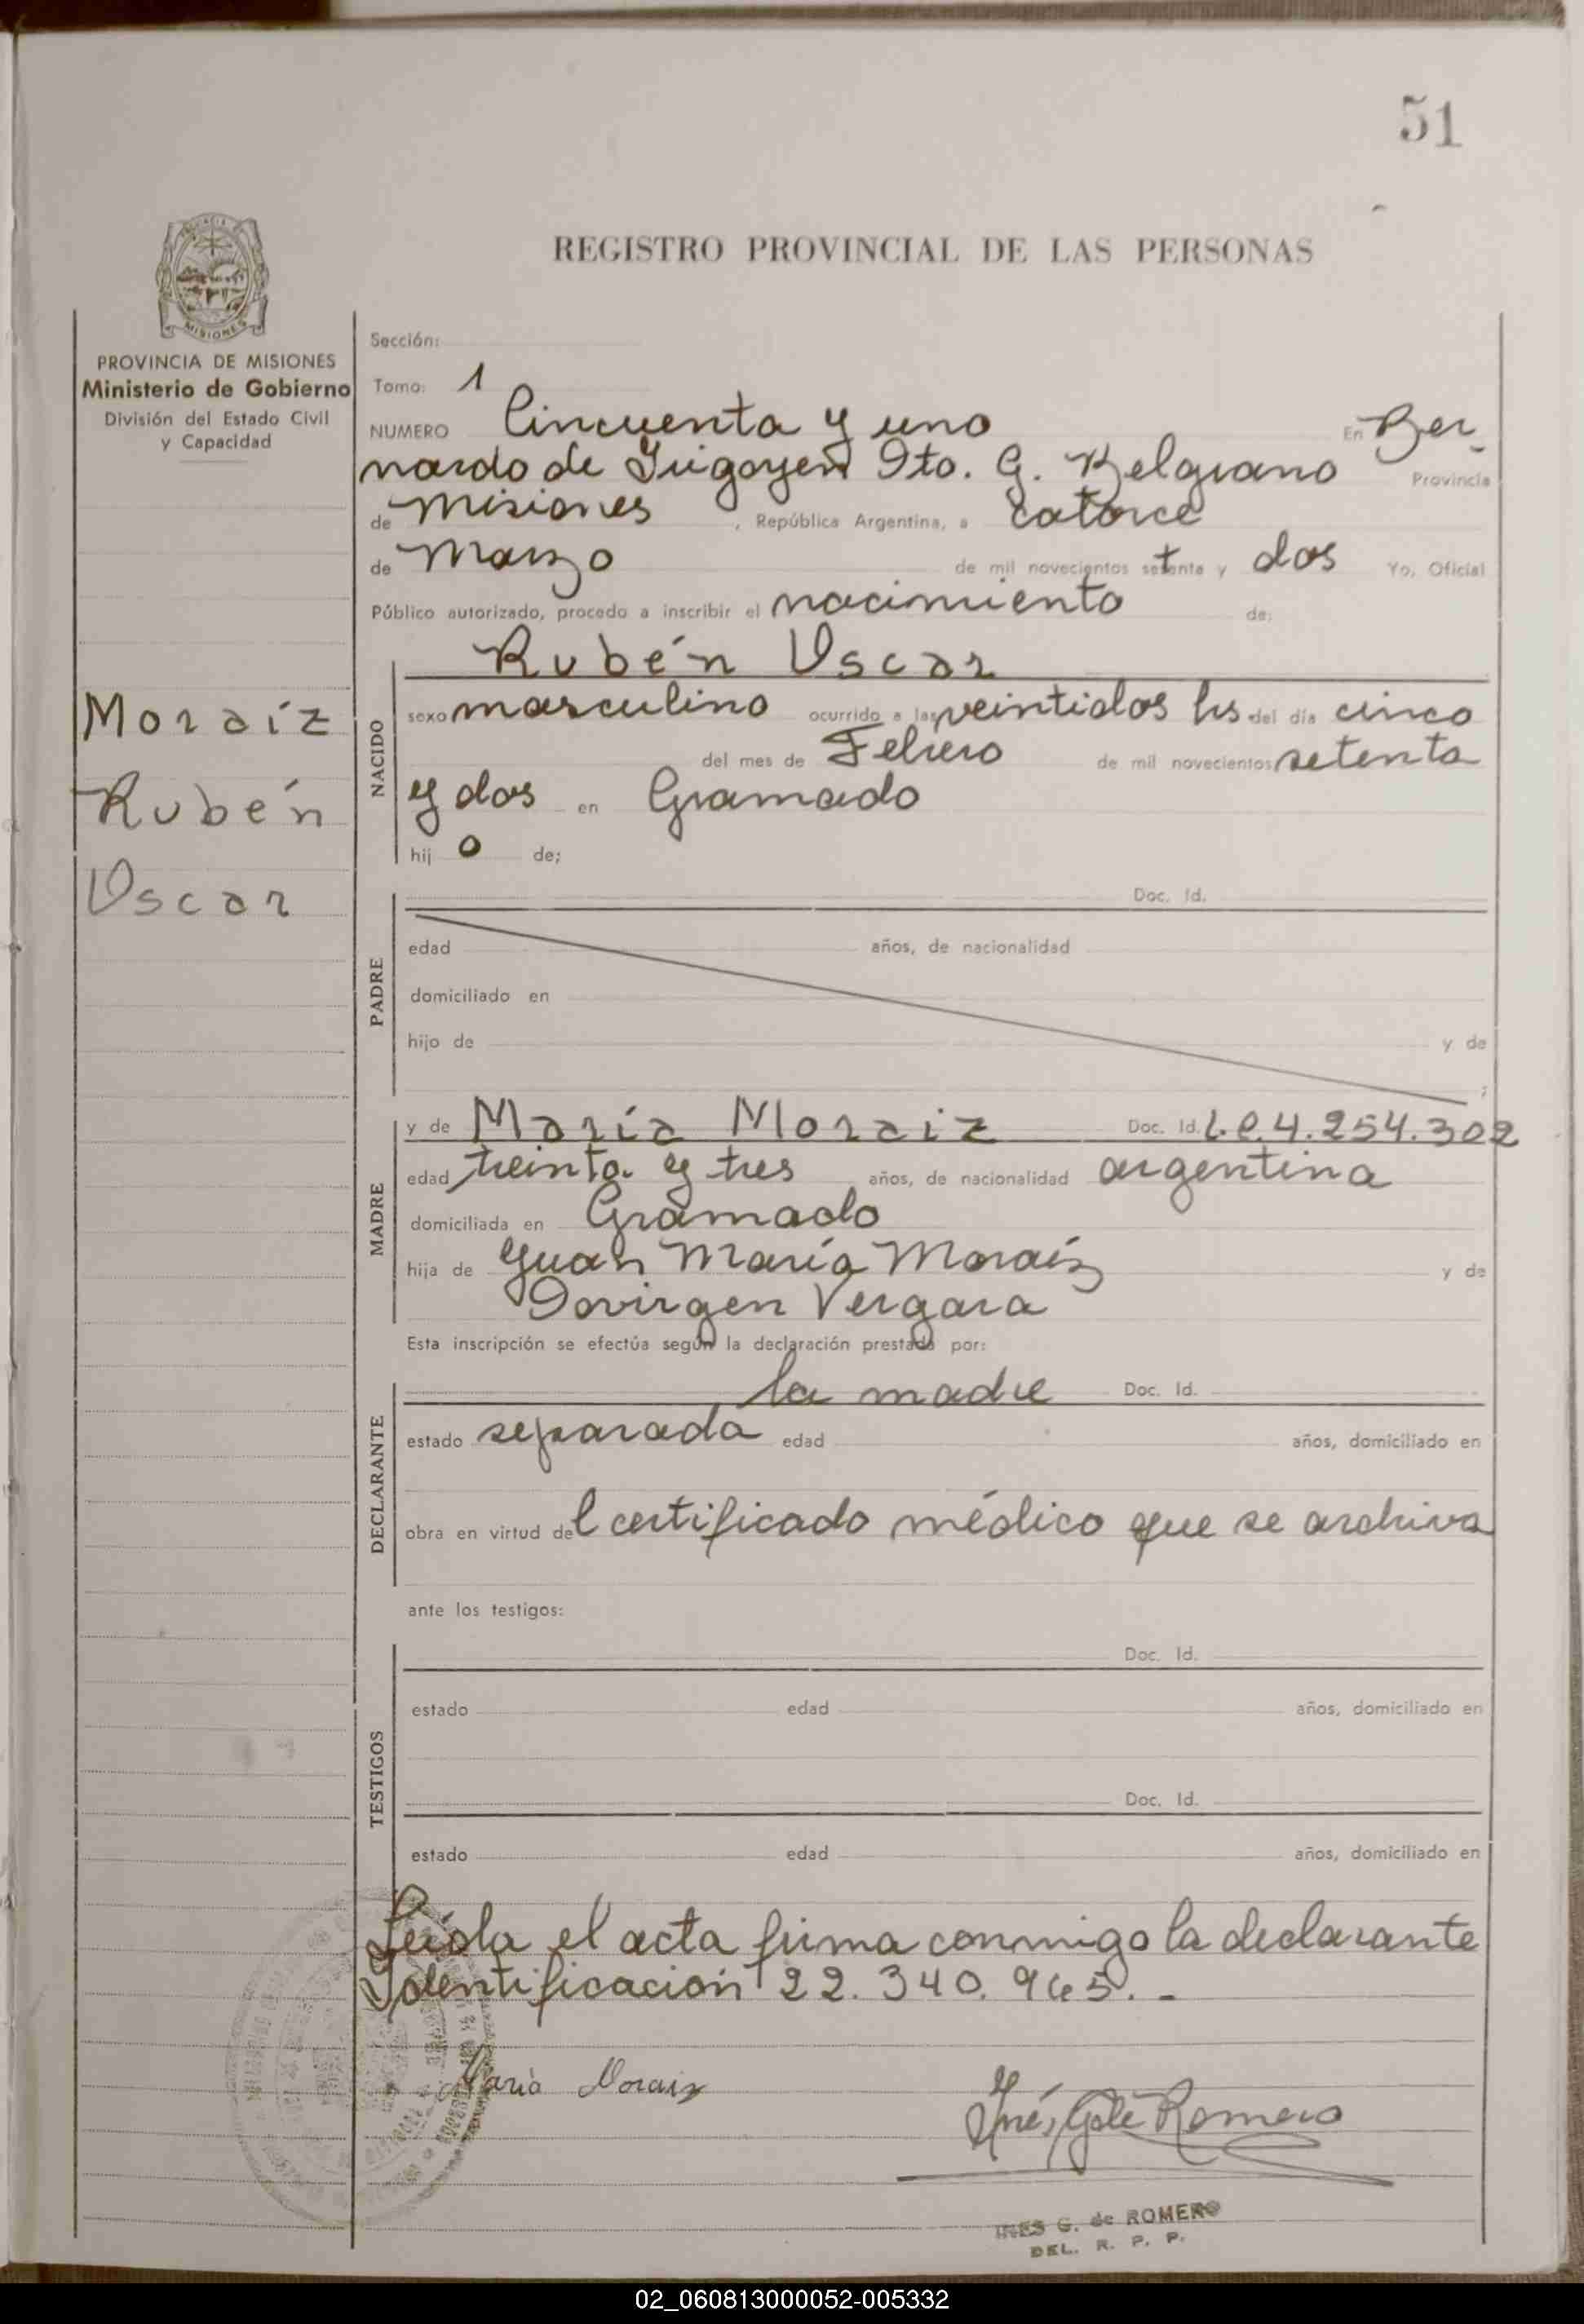 51
REGISTRO PROVINCIAL DE LAS PERSONAS
MISIONES
PROVINCIA DE MISIONES
Ministerio de Gobierno
División del Estado Civil
y Capacidad
Moraíz
Rubén
Oscar
Sección:
Tomo: 1
NUMERO Cincuenta y uno En Ber-
nardo de Irigoyen Dto. G. Belgrano Provincia
de Misiones , República Argentina, a catorce
de Marzo de mil novecientos setenta y dos Yo, Oficial
Público autorizado, procedo a inscribir el nacimiento de:
Rubén Oscar
NACIDO
sexo masculino ocurrido a las veintidos hs del día cinco
del mes de Febrero de mil novecientos setenta
y dos en Gramado
hij o de;
PADRE
Doc. Id.
edad años, de nacionalidad
domiciliado en
hijo de y de
;
MADRE
y de María Moraiz Doc. Id. L.C. 4.254.302
edad treinta y tres años, de nacionalidad argentina
domiciliada en Gramado
hija de Juan María Moraíz y de
Dovirgen Vergara
Esta inscripción se efectúa según la declaración prestada por:
DECLARANTE
la madre Doc. Id.
estado separada edad años, domiciliado en
obra en virtud del certificado médico que se archiva
ante los testigos:
TESTIGOS
Doc. Id.
estado edad años, domiciliado en
Doc. Id.
estado edad años, domiciliado en
Leída el acta firma conmigo la declarante
Identificación 22.340.965.-
María Moraiz
Inés G. de Romero
INES G. de ROMERO
DEL. R. P. P.
02_060813000052-005332